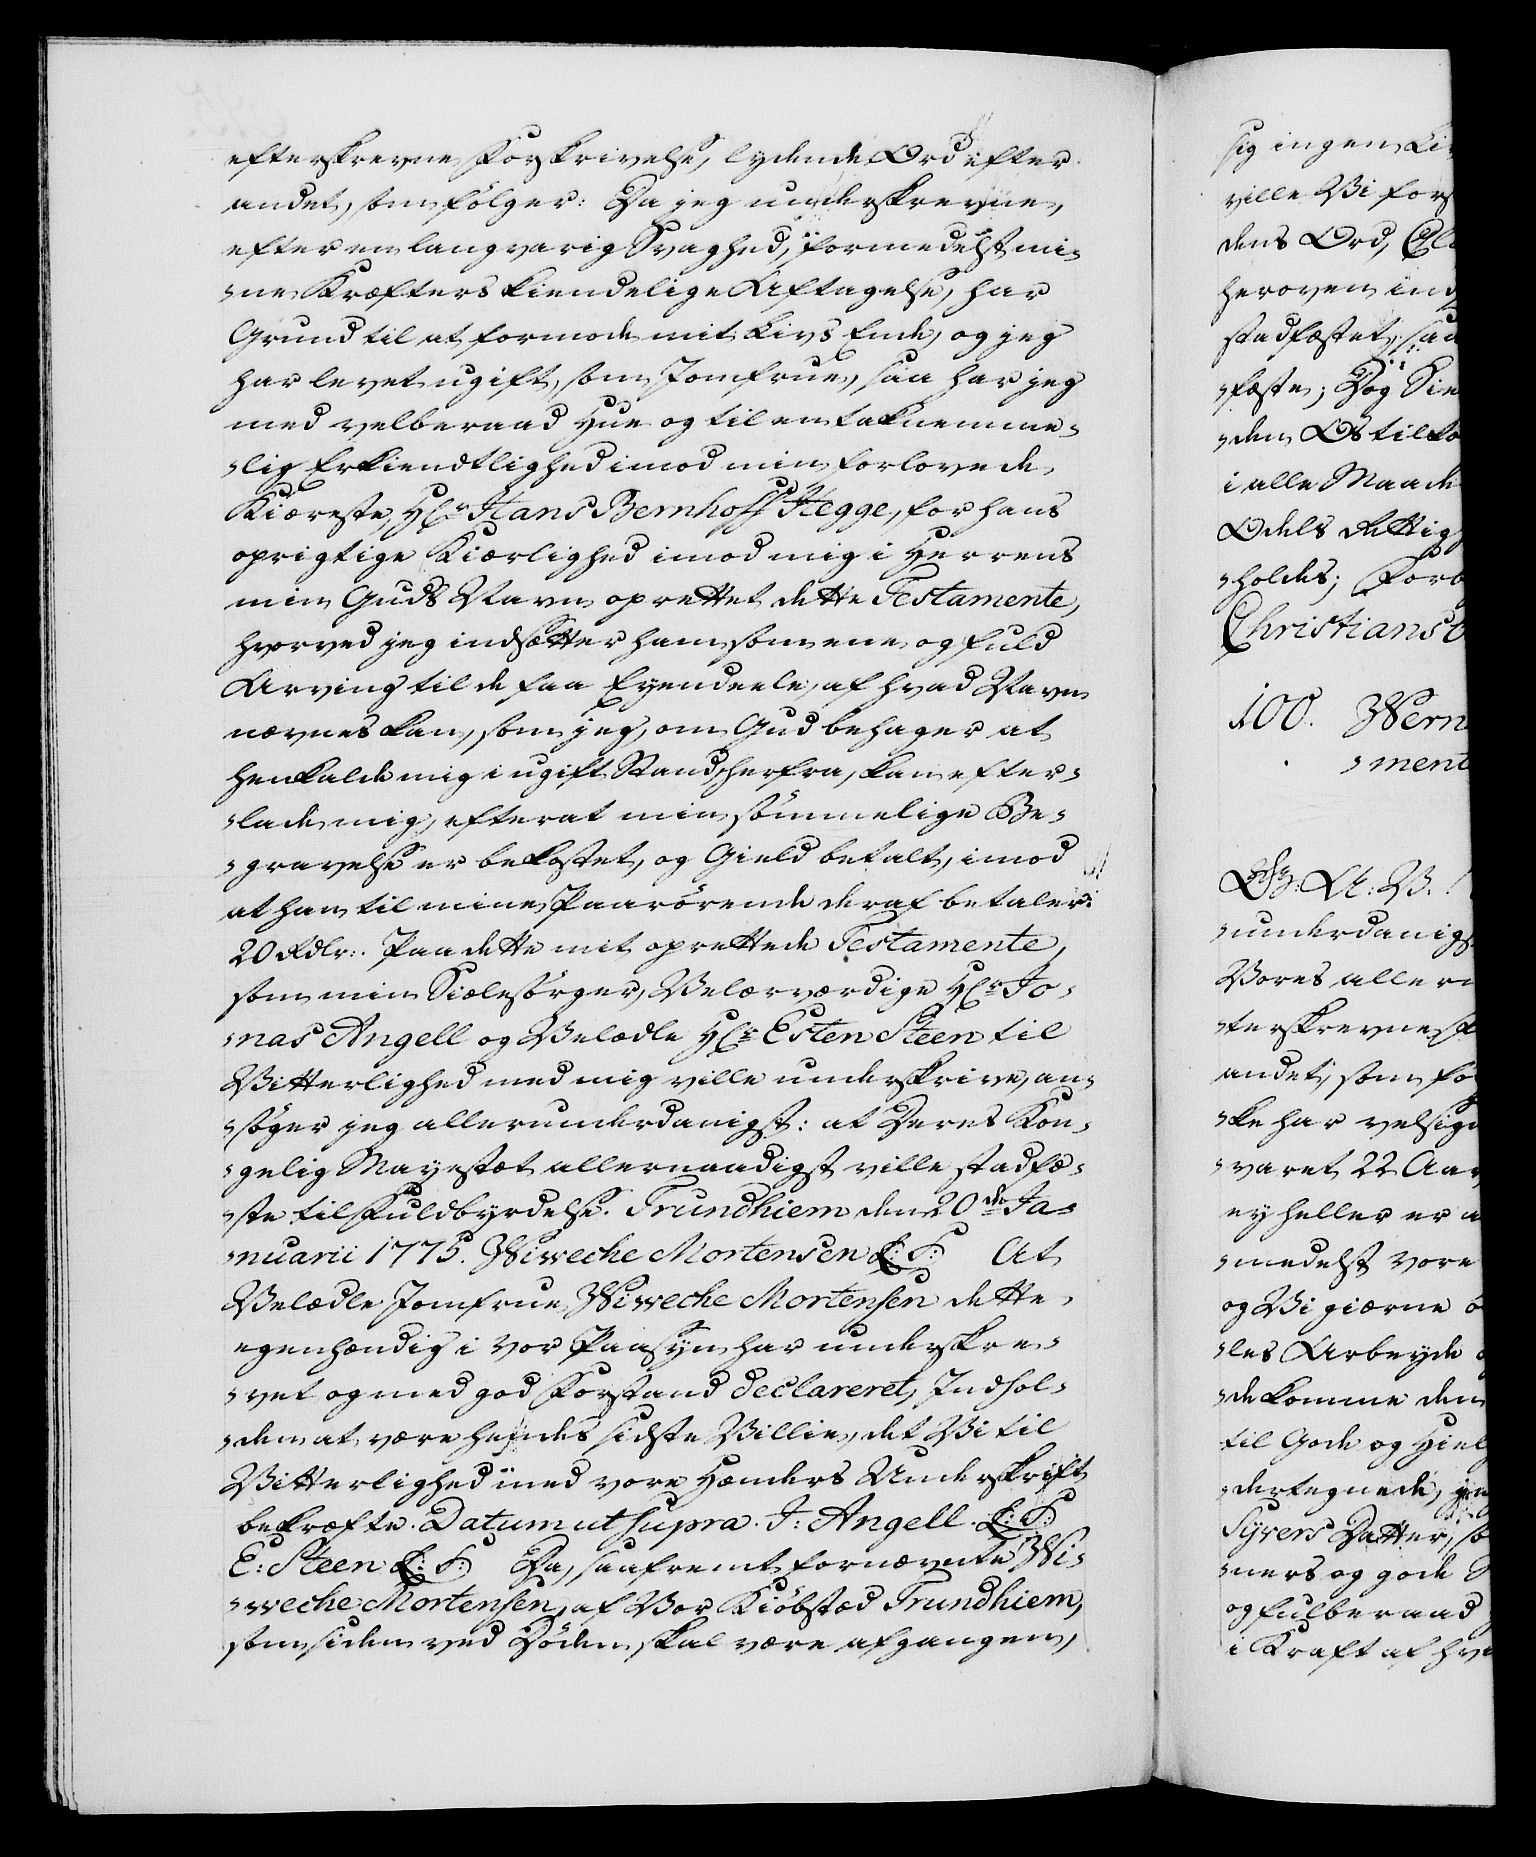 efterskrevne Forskrivelse, lydende Ord efter
andet, som følger: Da jeg underskrevne,
efter en langvarig Svaghed, formedelst mi-
-ne Kræfters kiendelige Aftagelse, har
Grund til at formode mit Livs Ende, og jeg
har levet ugift, som Jomfrue, saa har jeg
med velberaad Hue og til en taknemme-
-lig Erkiendtlighed imod min forlovede
Kiæreste, Hr. Hans Bernhoff Hegge, for hans
oprigtige Kiærlighed imod mig i Herrens
min Guds Navn oprettet dette Testamente,
hvorved jeg indsætter ham som ene og fuld
Arving til de faa Eyendeele, af hvad Navn
nævnes kan, som jeg, om Gud behager at
henkalde mig i ugift Stand herfra, kan efter-
-lade mig, efterat min sømmelige Be-
-gravelse er bekostet, og Gield betalt, imod
at han til mine Paarørende deraf betaler:
20 Rdlr: Paa dette mit oprettede Testamente,
som min Siælesørger, Velærværdige Hr. Jo-
-nas Angell og Velædle Hr. Esten Steen til
Vitterlighed med mig ville underskrive, an-
-søger jeg allerunderdanigst: at Deres Kon-
-gelig Mayestæt allernaadigst ville stadfæ-
-ste til Fuldbyrdelse. Trundhiem den 20de Ja-
-nuarii 1775. Wiweche Mortensen L: S: At
Velædle Jomfrue Wiweche Mortensen dette
egenhændig i vor Paasyn har underskre-
-vet og med god Forstand declareret, Indhol-
-den at være hendes sidste Villie, det Vi til
Vitterlighed med vore Hænders Underskrift
bekræfte. Datum ut supra. J: Angell. L: S:
E: Steen L: S: Da, saafremt fornævnte Wi-
-weche Mortensen, af Vor Kiøbstæd Trundhiem,
som siden ved Døden skal være afgangen,
sig ingen
ville Vi
dens Ord,
heroven
stadfæstet,
-fæste; Dog
-den Os
i alle Maade
Odels Rettig
-holdes;
Christiansb
100. Wern
-ment
-underdanigst
Vores
-terskrevne
andet, som
-ke har
-varet 22 Aar
ey heller er
-medelst vore
og Vi gierne
-les Arbeyde
-de komme den
til Gode og
-dertegnede,
Syvers Datter,
-ners og gode
og fulberaad
i Kraft af